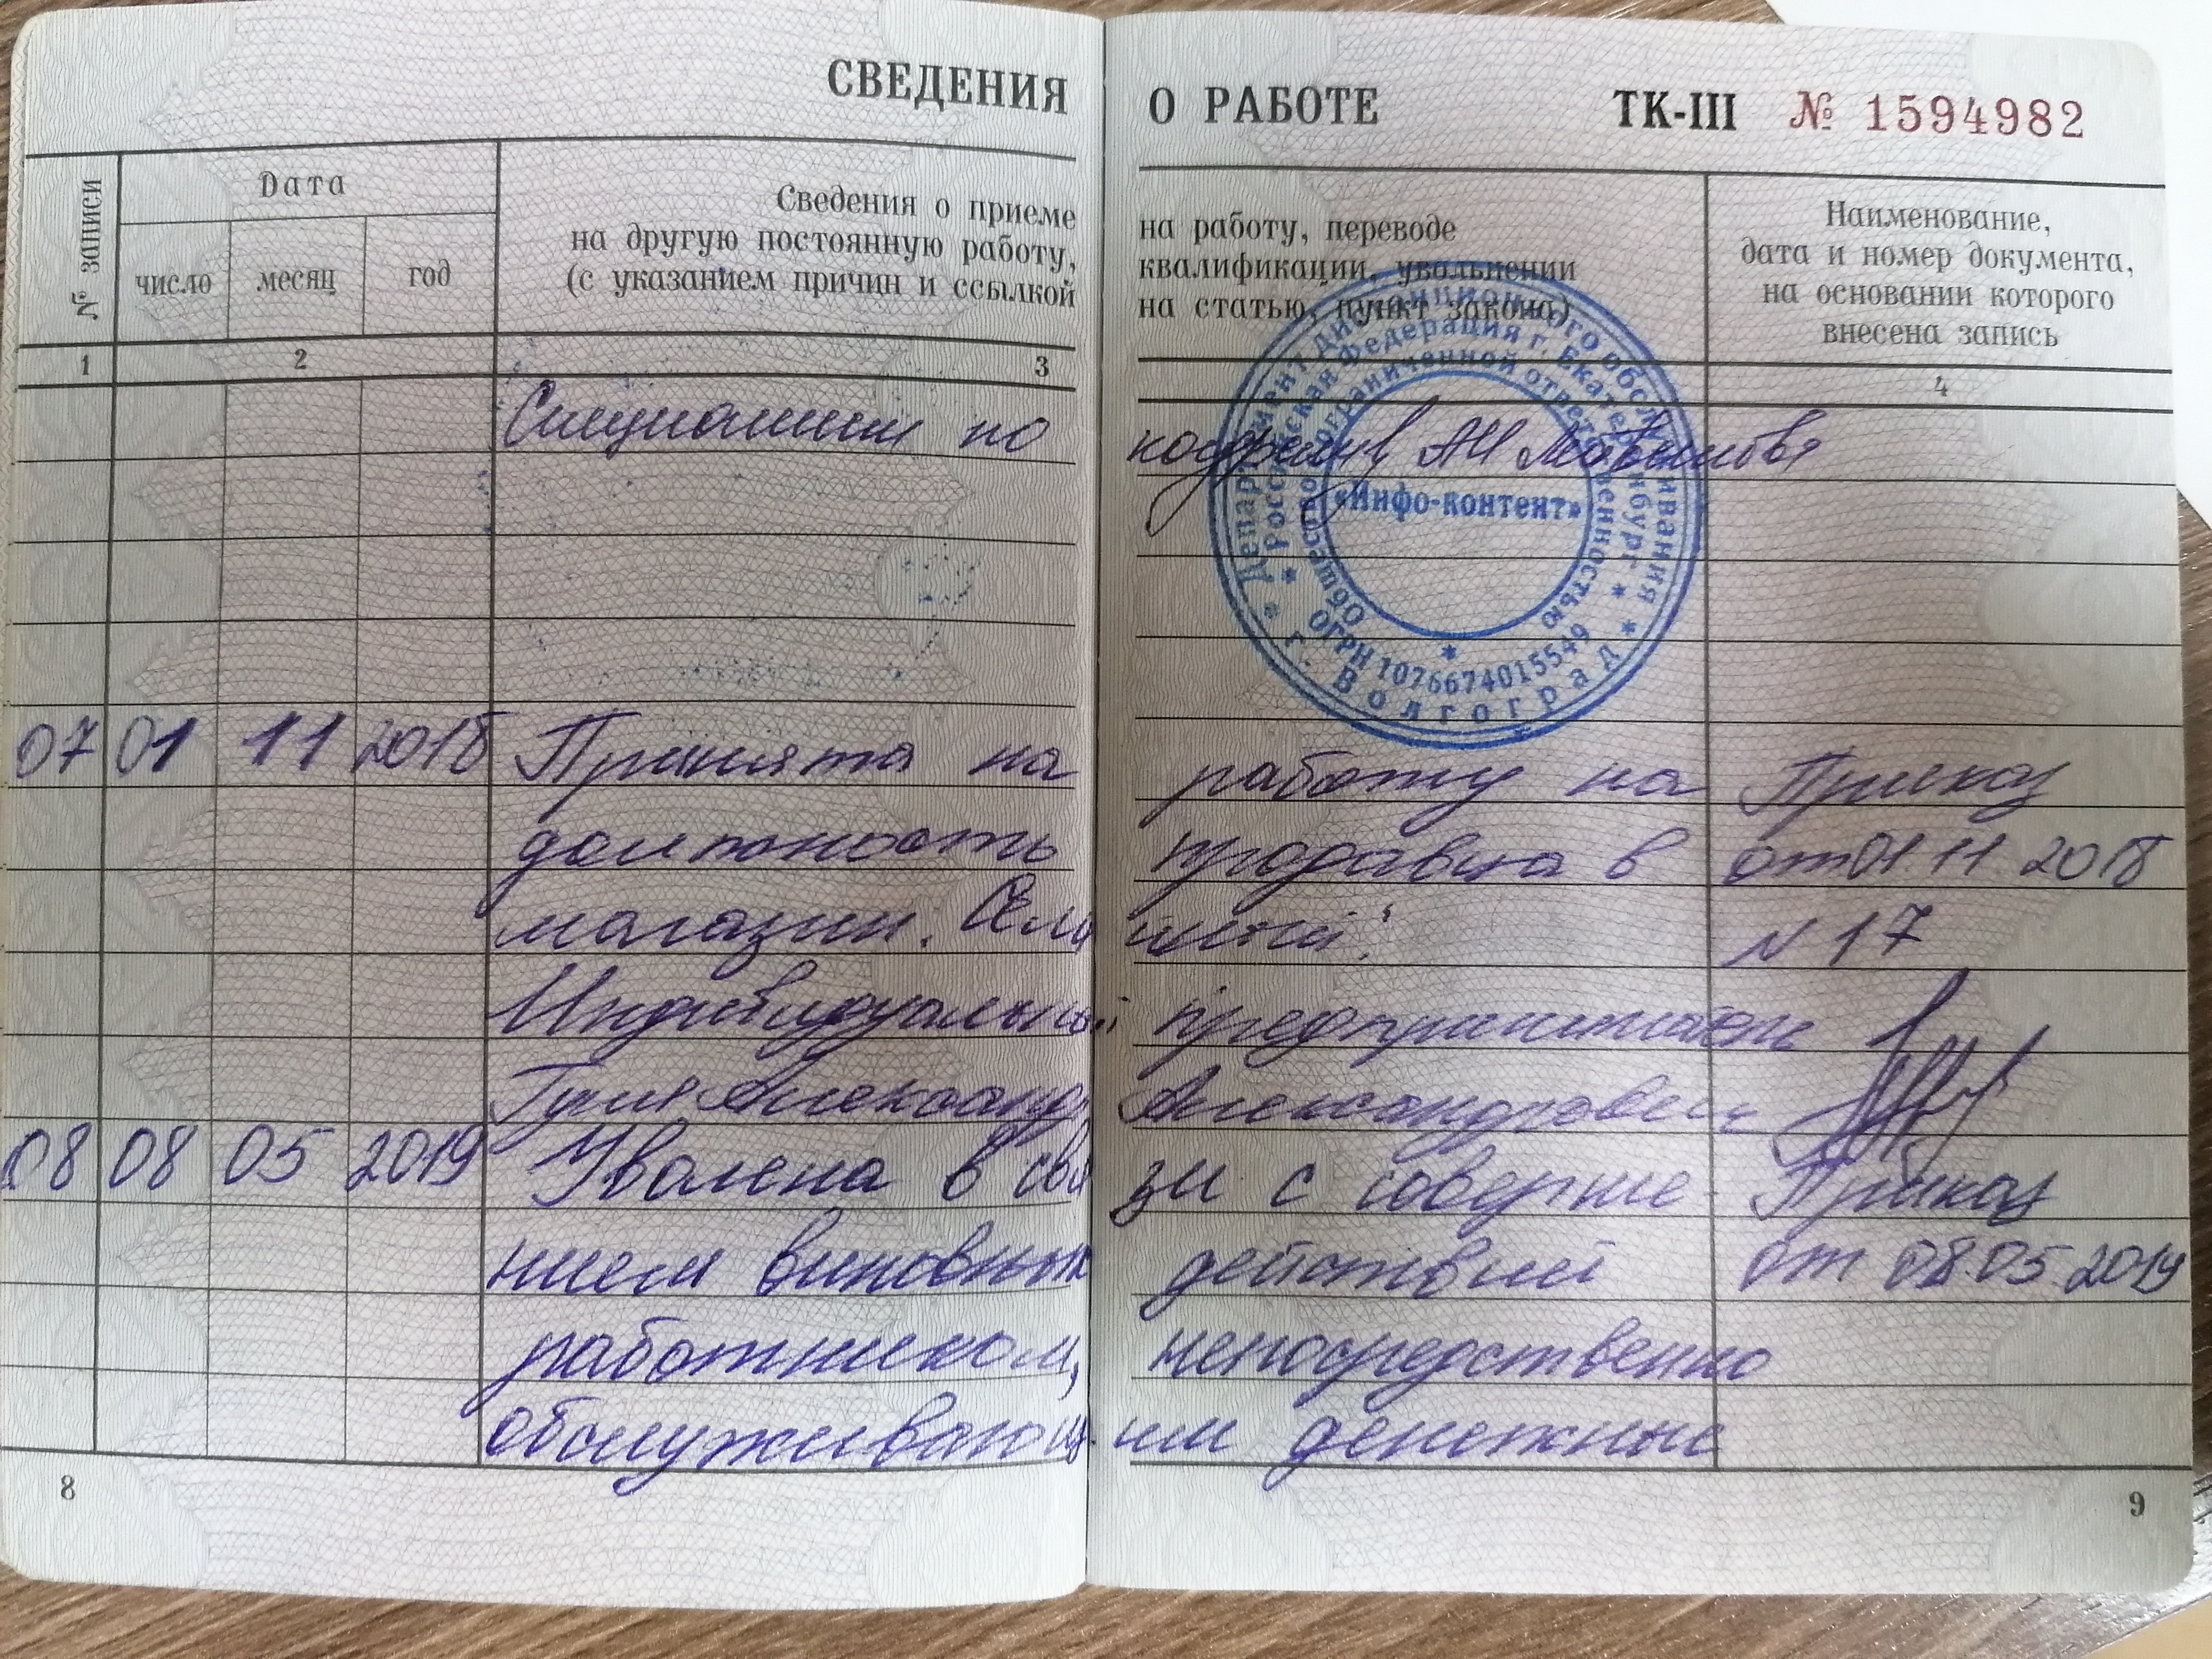 СВЕДЕНИЯ О РАБОТЕ ТК-III № 1594982
№ записи
Дата
число месяц год
Сведения о приеме на работу, переводе
на другую постоянную работу, квалификации, увольнении
(с указанием причин и ссылкой на статью, пункт закона)
Наименование,
дата и номер документа,
на основании которого
внесена запись
1 2 3 4
Специалист по кадрам
Департамент дистанционного обслуживания * г. Волгоград *
Российская Федерация г. Екатеринбург *
Общество с ограниченной ответственностью
ОГРН 1076674015549
«Инфо-контент»
07 01 11 2018 Принята на работу на Приказ
должность продавца в от 01 11 2018
магазин. № 17
Индивидуальный предприниматель
Александр Александрович
08 08 05 2019 Уволена в связи с соверше- Приказ
нием виновных действий от 08.05.2019
работником, непосредственно
обслуживающим денежные
8
9